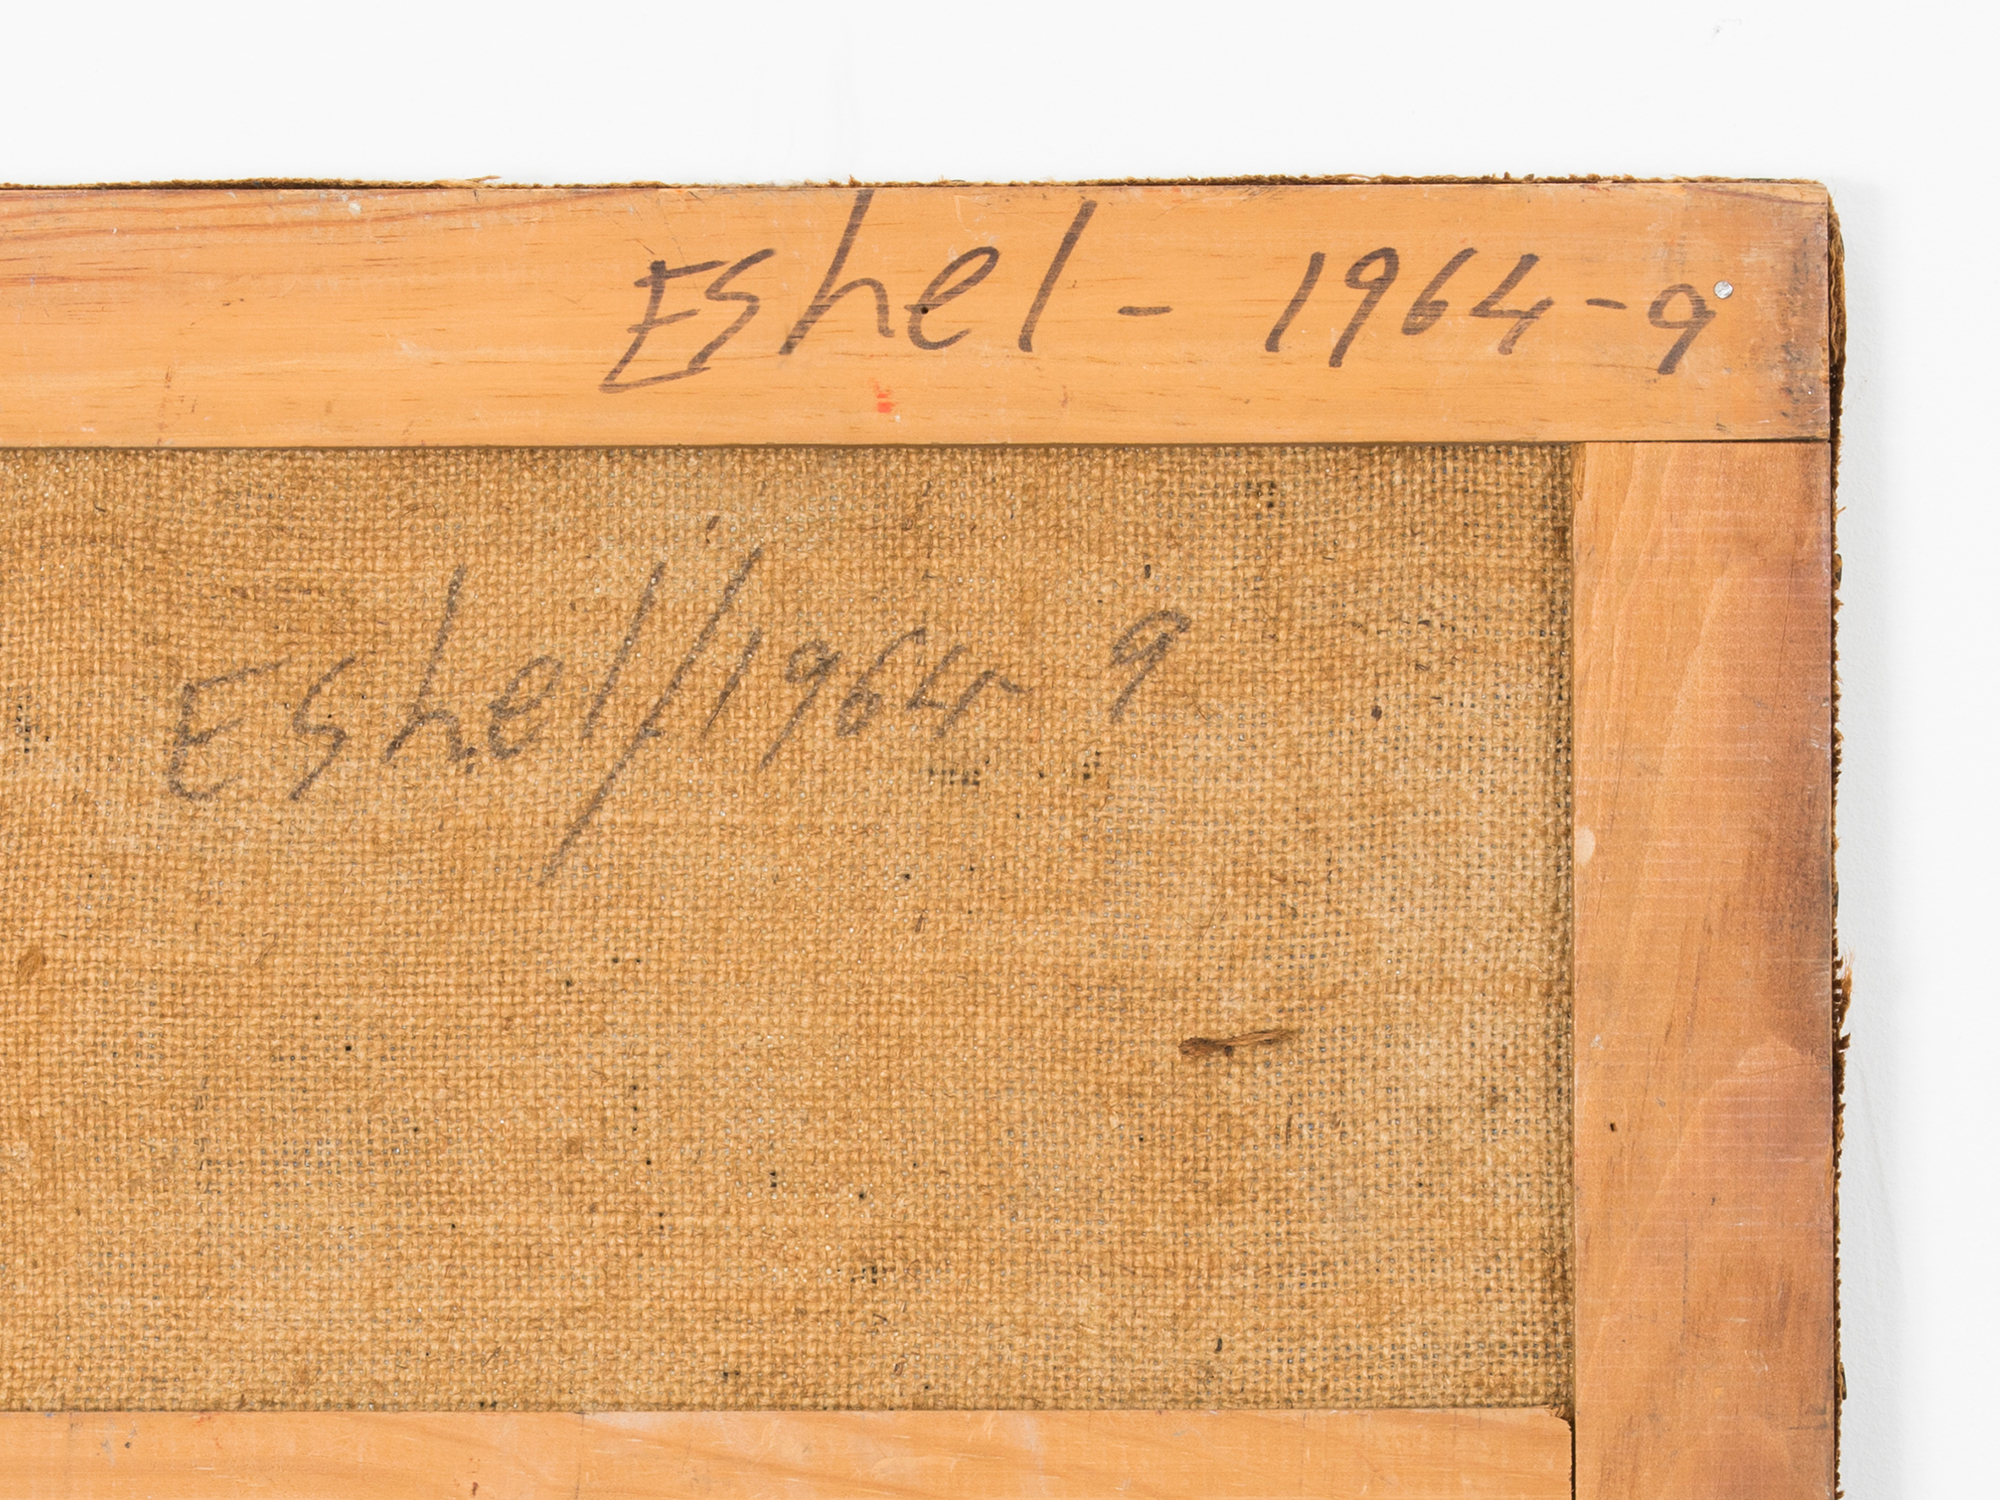 Eshel - 1964-9
Eshel/1964-9